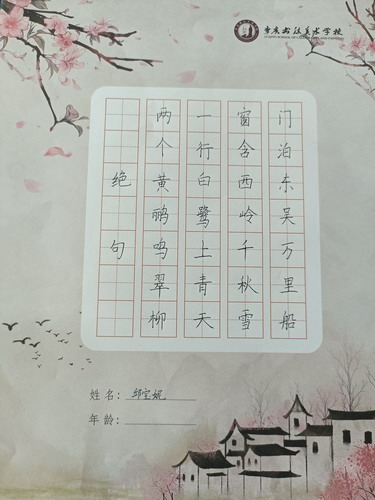 李庆书法美术学校
绝句
两个黄鹂鸣翠柳
一行白鹭上青天
窗含西岭千秋雪
门泊东吴万里船
姓名: 邱宝妮
年龄: